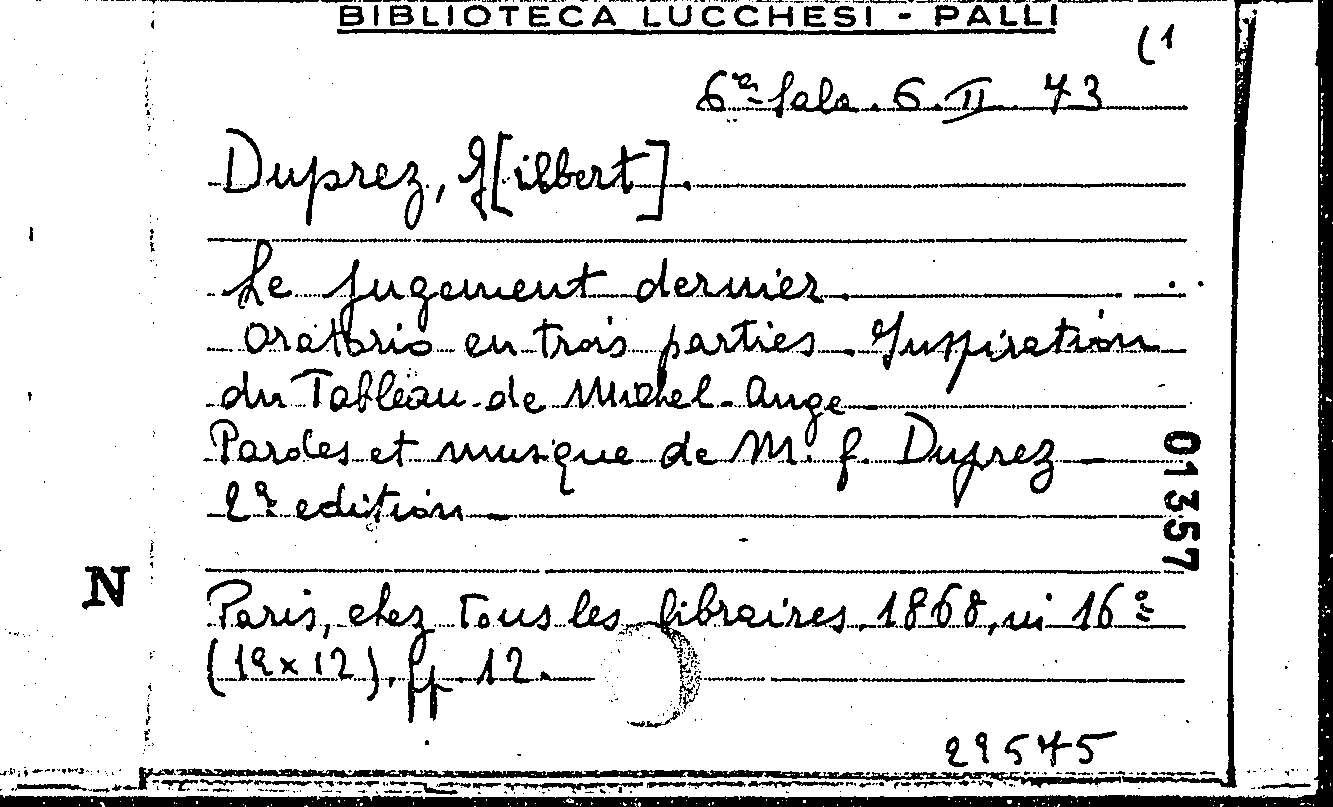 BIBLIOTECA LUCCHESI - PALLI
(1
6ª Sala. 6. II. 43
Duprez, G[ilbert].
Le jugement dernier.
Oratorio en trois parties. Inspiration
du Tableau de Michel-Ange
Paroles et musique de M. G. Duprez -
2ª edition -
Paris, chez tous les libraires, 1868, in 16º
(19x12). pp. 12.
29545
01357
N